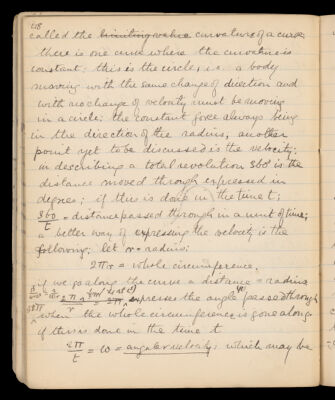 48
called the limiting value curvature of a curve
there is one curve where the curvature is
constant; this is the circle, i.e. a body
moving with the same change of direction and
with no change of velocity must be moving
in a circle: the constant force always being
in the direction of the radius, another
point yet to be discussed is the velocity;
in describing a total revolution 360° is the
distance moved through expressed in
degrees; if this is done in the time t;
360/t = distance passed through in a unit of time;
a better way of expressing the velocity is the
following; let r = radius;
2πr = whole circumference.
if we go along the curve a distance = radius
2πr/r = 2π, expresses the angle passed through
when the whole circumference is gone along
if this is done in the time t
2π/t = ω = angular velocity; which may be